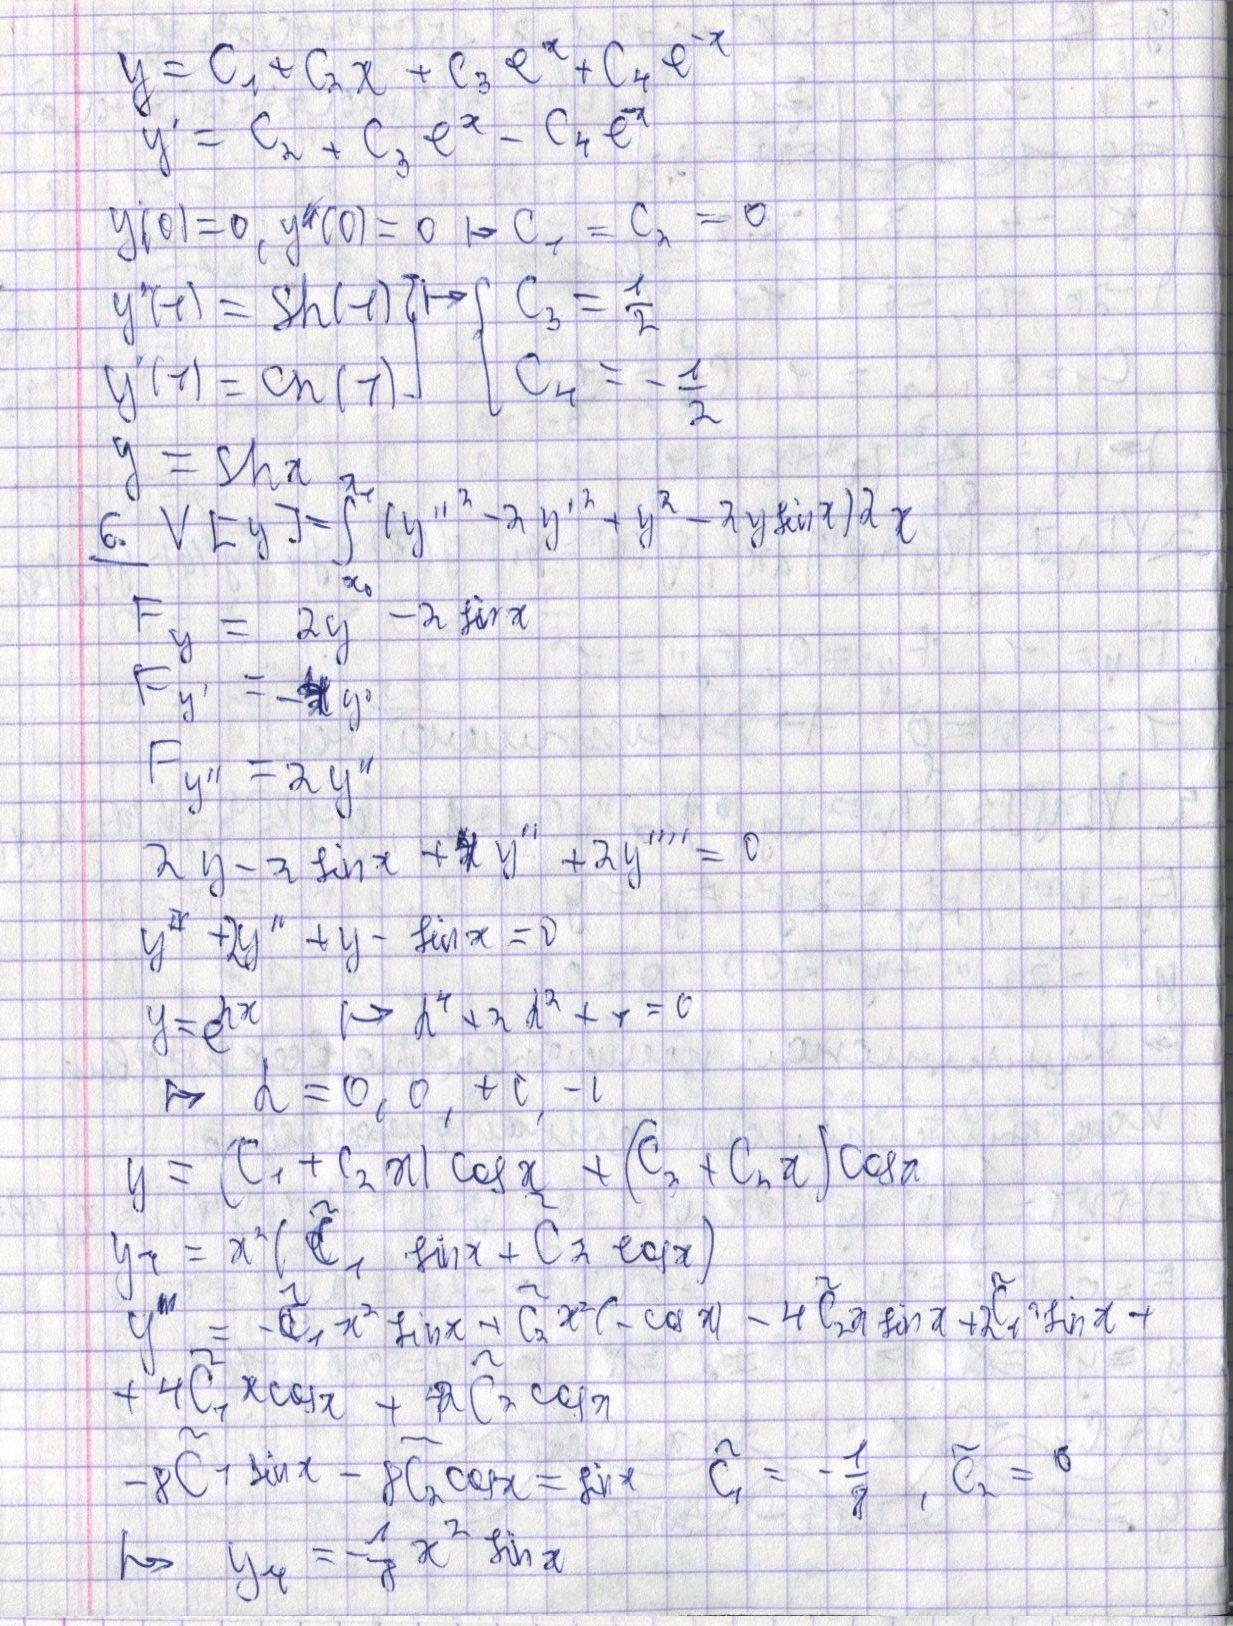 y = C₁ + C₂ x + C₃ eˣ + C₄ e⁻ˣ
y' = C₂ + C₃ eˣ − C₄ e⁻ˣ
y(0) = 0, y''(0) = 0 ↦ C₁ = C₂ = 0
y'(1) = sh(1) ] ↦ { C₃ = 1/2
y'(1) = ch(1) ] { C₄ = − 1/2
y = sh x
6. V[y] = ∫_{x₀}^{x₁} (y''² − 2y'² + y² − 2y sin x) 2x
F_y = 2y − 2 sin x
F_y' = −4y'
F_y'' = 2y''
2y − 2 sin x + 4y'' + 2y'''' = 0
y^{IV} + 2y'' + y − sin x = 0
y = e^{λx} ↦ λ⁴ + 2λ² + 1 = 0
↦ λ = 0, 0, +i, −i
y = (C₁ + C₂ x) cos x + (C₃ + C₂ x) cos x
y₄ = x² (C̃₁ sin x + C̃₂ cos x)
y'' = −C̃₁ x² sin x + C̃₂ x² (−cos x) − 4C̃₂ x sin x + 2C̃₁ sin x +
+ 4C̃₁ x cos x + 2C̃₂ cos x
−8C̃₁ sin x − 8C̃₂ cos x = sin x C̃₁ = −1/8 , C̃₂ = 0
↦ y₄ = −1/8 x² sin x